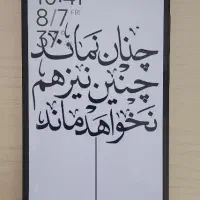 10:41
8/7 FRI
37%
چنان نماند
چنین نیز هم
نخواهد ماند